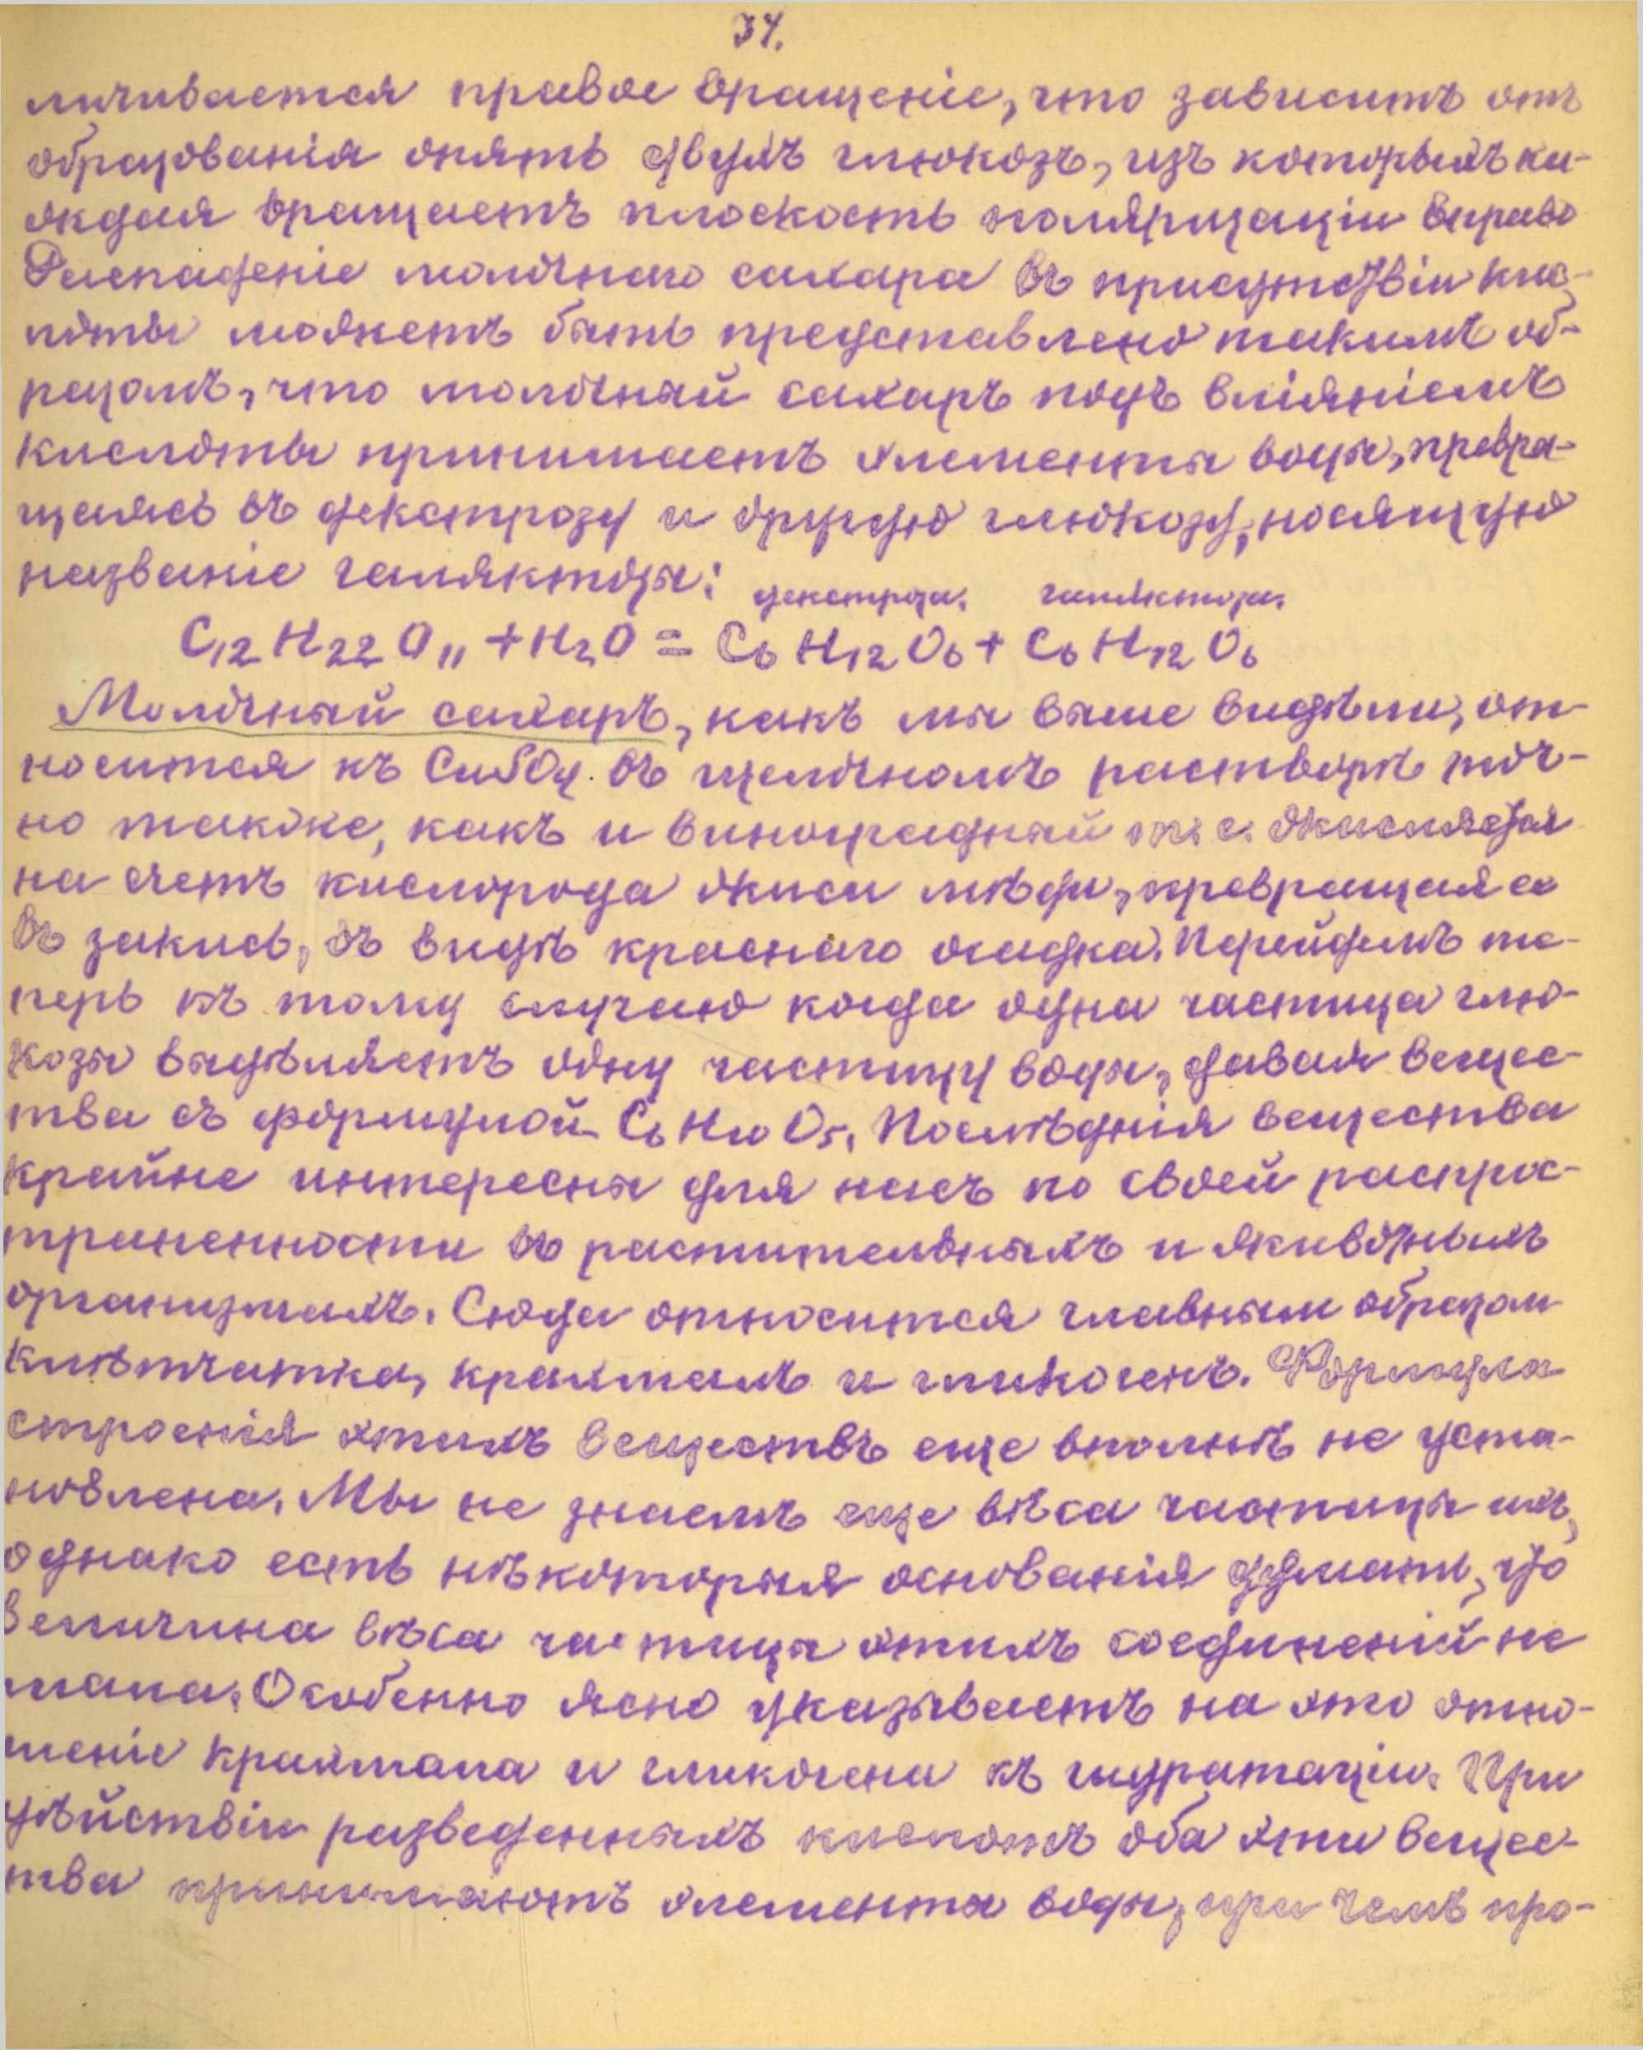 34.
личивается правое вращеніе, что зависитъ отъ
образованія опять двухъ глюкозъ, изъ которыхъ ка-
ждая вращаетъ плоскость поляризаціи вправо
Распаденіе молочнаго сахара въ присутствіи кис-
лоты можетъ быть представлено такимъ об-
разомъ, что молочный сахаръ подъ вліяніемъ
кислоты принимаетъ элементы воды, превра-
щаясь въ декстрозу и другую глюкозу, носящую
названіе галяктозы: декстроза. галяктоза.
C12 H22 O11 + H2O = C6 H12 O6 + C6 H12 O6
Молочный сахаръ, какъ мы выше видѣли, от-
носится къ CuSO4 въ щелочномъ растворѣ точ-
но также, какъ и виноградный т. е. окисляется
на счетъ кислорода окиси мѣди, превращая ее
въ закись, въ видѣ краснаго осадка. Перейдемъ те-
перь къ тому случаю когда одна частица глю-
козы выдѣляетъ одну частицу воды, давая вещес-
тва съ формулой C6 H10 O5. Послѣднія вещества
крайне интересны для насъ по своей распрос-
траненности въ растительныхъ и животныхъ
организмахъ. Сюда относится главным образом
клѣтчатка, крахмалъ и гликогенъ. Формула
строенія этихъ веществъ еще вполнѣ не уста-
новлена. Мы не знаемъ еще вѣса частицы ихъ,
однако есть нѣкоторыя основанія думать, что
величина вѣса частицы этихъ соединеній не
мала. Особенно ясно указываетъ на это отно-
шеніе крахмала и гликогена къ гидратаціи. При
дѣйствіи разведенныхъ кислотъ оба эти вещес-
тва принимаютъ элементы воды, при чемъ про-